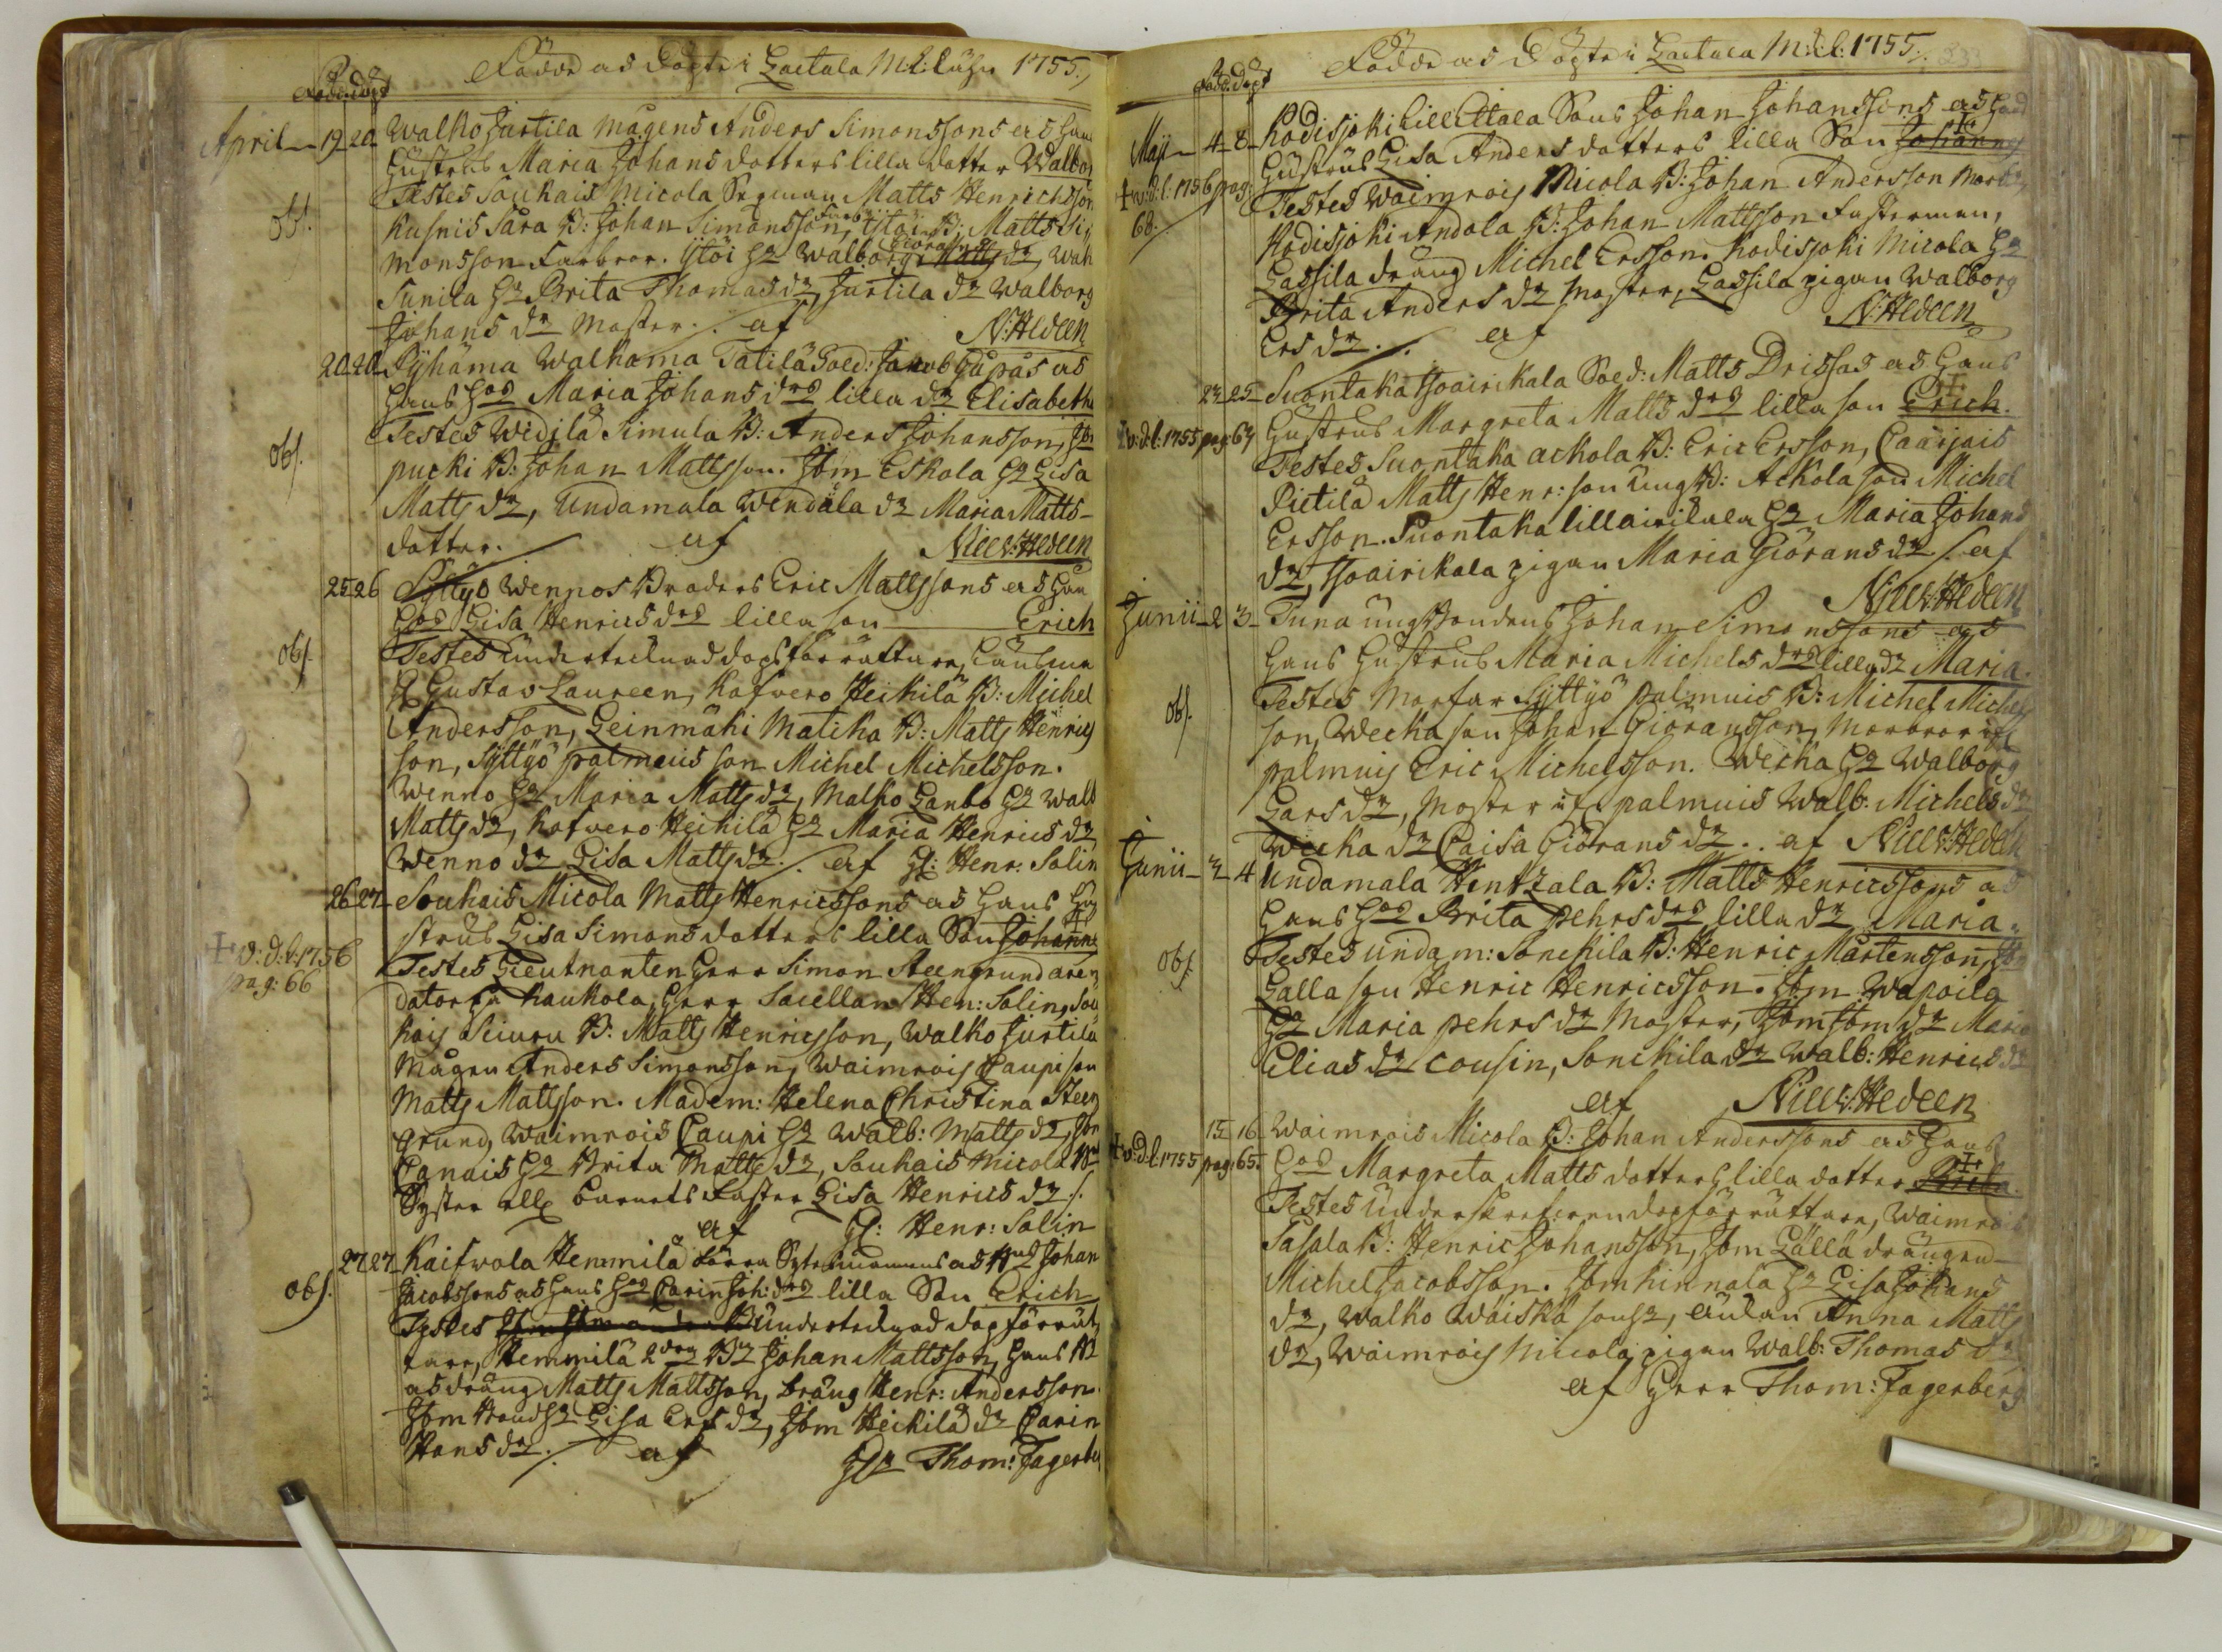 Födde och Döpte i Laitala M:l: Kÿrk 1755.
Född. döpt
April 19 20 Walko Jurtila mågens Anders Simonssons och hans
hustrus Maria Johans dotters lilla dotter Walborg
Testes Soukais Micola Matts Henrichsson
obs. Kusnis Sara B: Johan Simonsson, Ÿlöis B: Matts Si,
monsson Farbror. Ÿlöi H:u Walborg Giörans Matts dr, Wah
Sunila H:u Brita Thomas dr, Jurtila dr Walborg
Johans dr Moster. af N: Hedeen
20 20 Pÿhäma Walkama Tatila Sold: Jacob och
hans H:us Maria Johans drs lilla dr Elisabetha
Testes Widilä Simula B: Anders Johansson, Ibm
obs. pucki B: Johan Mattsson. Ibm Eskola H:u Lisa
Matts dr, Undamala Wendäla dr Maria Matts-
dotter. af Nils: Hedeen
25 26 Sÿttÿö Wennos Broders Eric Mattssons och han
H:us Lisa Henrics drs lilla son Erich
obs. Testes undertecknad dopsförrättare, Länsman
H Gustav Laureen, Kafvero Heikilä B: Michel
Andersson, Leinmäki Matika B: Matts Henrics
son, Sÿttÿö palmuis son Michel Michelsson.
Wenno H:u Maria Matts dr, Malko Lanbo H:u Walb
Matts dr, Kafvero Heikilä H:u Maria Henrics dr
Wenno dr Lisa Matts dr. af H: Henr. Salin
26 27 Soukais Micola Matts Henricssons och hans hu
strus Lisa Simons dotters lilla Son Johannes
+ v: d: l: 1756 Testes Lieutnanten Herr Simon Steengrund aren
pag: 66 dator på Kaukola, Herr Sacellan Hen: Salin, Sou
kais Seuru B: Matts Henricsson, Walko Jurtila
mågen Anders Simonsson, Waimrois Caupi son
Matts Mattsson. Madem: Helena Christina Steen
grund, Waimrois Caupi H:u Walb: Matts dr, Ibm
Canais H:u Brita Matts dr, Soukais Micola B
Syster eller barnets Faster Lisa Henrics dr.
af H: Henr: Salin
27 27 Kaifwola Hemmilä förra och B Johan
obs. Jacobssons och hans H:us Carin Joh: drs lilla Son Erich
Testes undertecknad dopförrät,
tare, Hemmilä B: Johan Mattsson, hans
och dräng Matts Mattsson, Dräng Henr: Andersson.
Ibm H:u Lisa Ers dr, Ibm Heikilä dr Carin
Hans dr. af H:r Thom: Fagerber
Födde och Döpte i Laitala M:l: 1755.
Född. döpt
Maji 4 8 Kodisjoki Lill Ettala Sons Johan Johanssons och hans
+ v: d: l: 1756 pag: hustrus Lisa Anders dotters lilla Son Johannes
68. Testes Waimrois Micola B: Johan Andersson Morbr,
Kodisjoki Andola B: Johan Mattsson Fasterman,
Lassila dräng Michel Ersson. Kodisjoki Micola H:u
Brita Anders dr Moster, Lassila pigan Walborg
Ers dr. af N: Hedeen
22 25 Suontaka Isoairikala Sold: Matts Drissas och hans
+ v: d: l: 1755 pag: 64 hustrus Margreta Matts drs lilla son Erich.
Testes Suontaka Ackola B: Eric Ersson, Caarjais
Pietilä Matts Henr: son Ung B: Ackola son Michel
Ersson. Suontaka lillairikala H:u Maria Johans
dr, Isoairikala pigan Maria Giörans dr. af
Nils: Hedeen
Junii 2 3 Tuna ung bondens Johan Simonssons och
hans hustrus Maria Michels drs lilla dr Maria.
obs. Testes Morfar Sÿttÿö palmuis B: Michel Michels
son, Wecka son Johan Giöransson, Morbror
palmuis Eric Michelsson. Wecka H:u Walborg
Lars dr, Moster palmuis Walb. Michels dr
Wecka dr Caisa Giörans dr. af Nils: Hedeen
Junii 3 4 Undamala Hentzala B: Matts Henricssons och
hans H:us Brita pehrs drs lilla dr Maria.
obs. Testes Undam: Sonckila B: Henric Mårtensson, Ibm
Lalla son Henric Henricsson. Ibm Wapoila
H:u Maria pehrs dr Moster, Ibm Ibm dr Maria
Elias dr Cousin, Sonckila dr Walb: Henrics dr
af Nils: Hedeen
15 16 Waimrois Micola B: Johan Anderssons och hans
+ v: d: l: 1755 pag: 65. H:us Margreta Matts dotters lilla dotter Brita.
Testes Underskrefven dopförrättare, Waimrois
Sasala B: Henric Johansson, Ibm Lälla drängen
Michel Jacobsson. Ibm Kinnala H:u Lisa Johans
dr, Walko Waiska, änkan Anna Matts
dr, Waimrois Micola pigan Walb: Thomas dr
af Herr Thom: Fagerberg